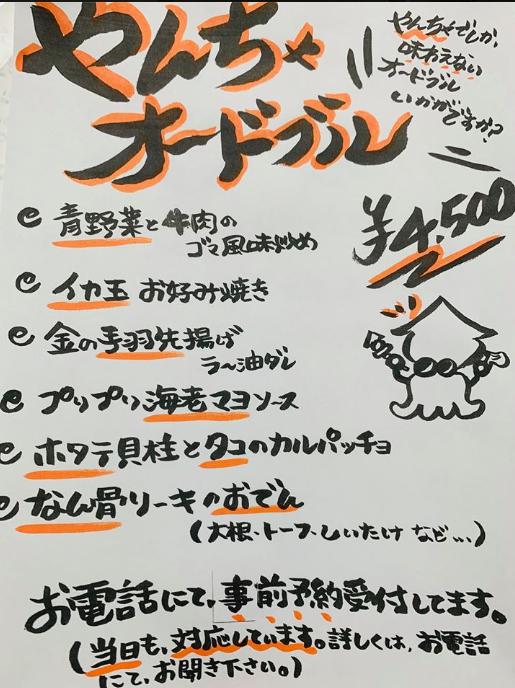 やんちゃ
オードブル
やんちゃでしか、
味わえない
オードブル
いかがですか?
¥4,500
青野菜と牛肉の
ゴマ風味炒め
イカ玉 お好み焼き
金の手羽先揚げ
ラ〜油ダレ
プリプリ海老マヨソース
ホタテ貝柱とタコのカルパッチョ
なん骨ソーキのおでん
(大根・トーフ・しいたけ など...)
お電話にて、事前予約受付してます。
(当日も、対応しています。詳しくは、お電話
にて、お聞き下さい。)